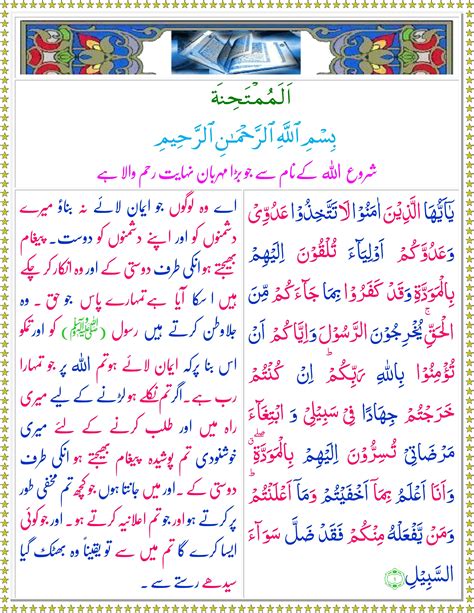 اَلْمُمْتَحِنَة
بِسْمِ اللّٰهِ الرَّحْمٰنِ الرَّحِيْمِ
شروع اللہ کے نام سے جو بڑا مہربان نہایت رحم والا ہے
يٰۤاَيُّهَا الَّذِيْنَ اٰمَنُوْا لَا تَتَّخِذُوْا عَدُوِّىْ
وَعَدُوَّكُمْ اَوْلِيَآءَ تُلْقُوْنَ اِلَيْهِمْ
بِالْمَوَدَّةِ وَقَدْ كَفَرُوْا بِمَا جَآءَكُمْ مِّنَ
الْحَقِّ ۚ يُخْرِجُوْنَ الرَّسُوْلَ وَاِيَّاكُمْ اَنْ
تُؤْمِنُوْا بِاللّٰهِ رَبِّكُمْ ؕ اِنْ كُنْتُمْ
خَرَجْتُمْ جِهَادًا فِىْ سَبِيْلِىْ وَ ابْتِغَآءَ
مَرْضَاتِىْ تُسِرُّوْنَ اِلَيْهِمْ بِالْمَوَدَّةِ ۖ
وَاَنَا اَعْلَمُ بِمَاۤ اَخْفَيْتُمْ وَمَاۤ اَعْلَنْتُمْ ؕ
وَمَنْ يَّفْعَلْهُ مِنْكُمْ فَقَدْ ضَلَّ سَوَآءَ
السَّبِيْلِ ۱
اے وہ لوگوں جو ایمان لائے نہ بناؤ میرے
دشمنوں کو اور اپنے دشمنوں کو دوست۔ پیغام
بھیجتے ہو انکی طرف دوستی کے اور وہ انکار کر چکے
ہیں اسکا آیا ہے تمہارے پاس جو حق ۔ وہ
جلاوطن کرتے ہیں رسول (ﷺ) کو اور تمکو
اس بنا پر کہ ایمان لائے ہو تم اللہ پر جو تمہارا
رب ہے۔ اگر تم نکلے ہو لڑنے کے لیے میری
راہ میں اور طلب کرنے کے لئے میری
خوشنودی تم پوشیدہ پیغام بھیجتے ہو انکی طرف
دوستی کے ۔ اور میں جانتا ہوں جو کچھ تم مخفی طور
پر کرتے ہو اور جو تم اعلانیہ کرتے ہو ۔ اور جو کوئی
ایسا کرے گا تم میں سے تو یقیناً وہ بھٹک گیا
سیدھے رستے سے ۔